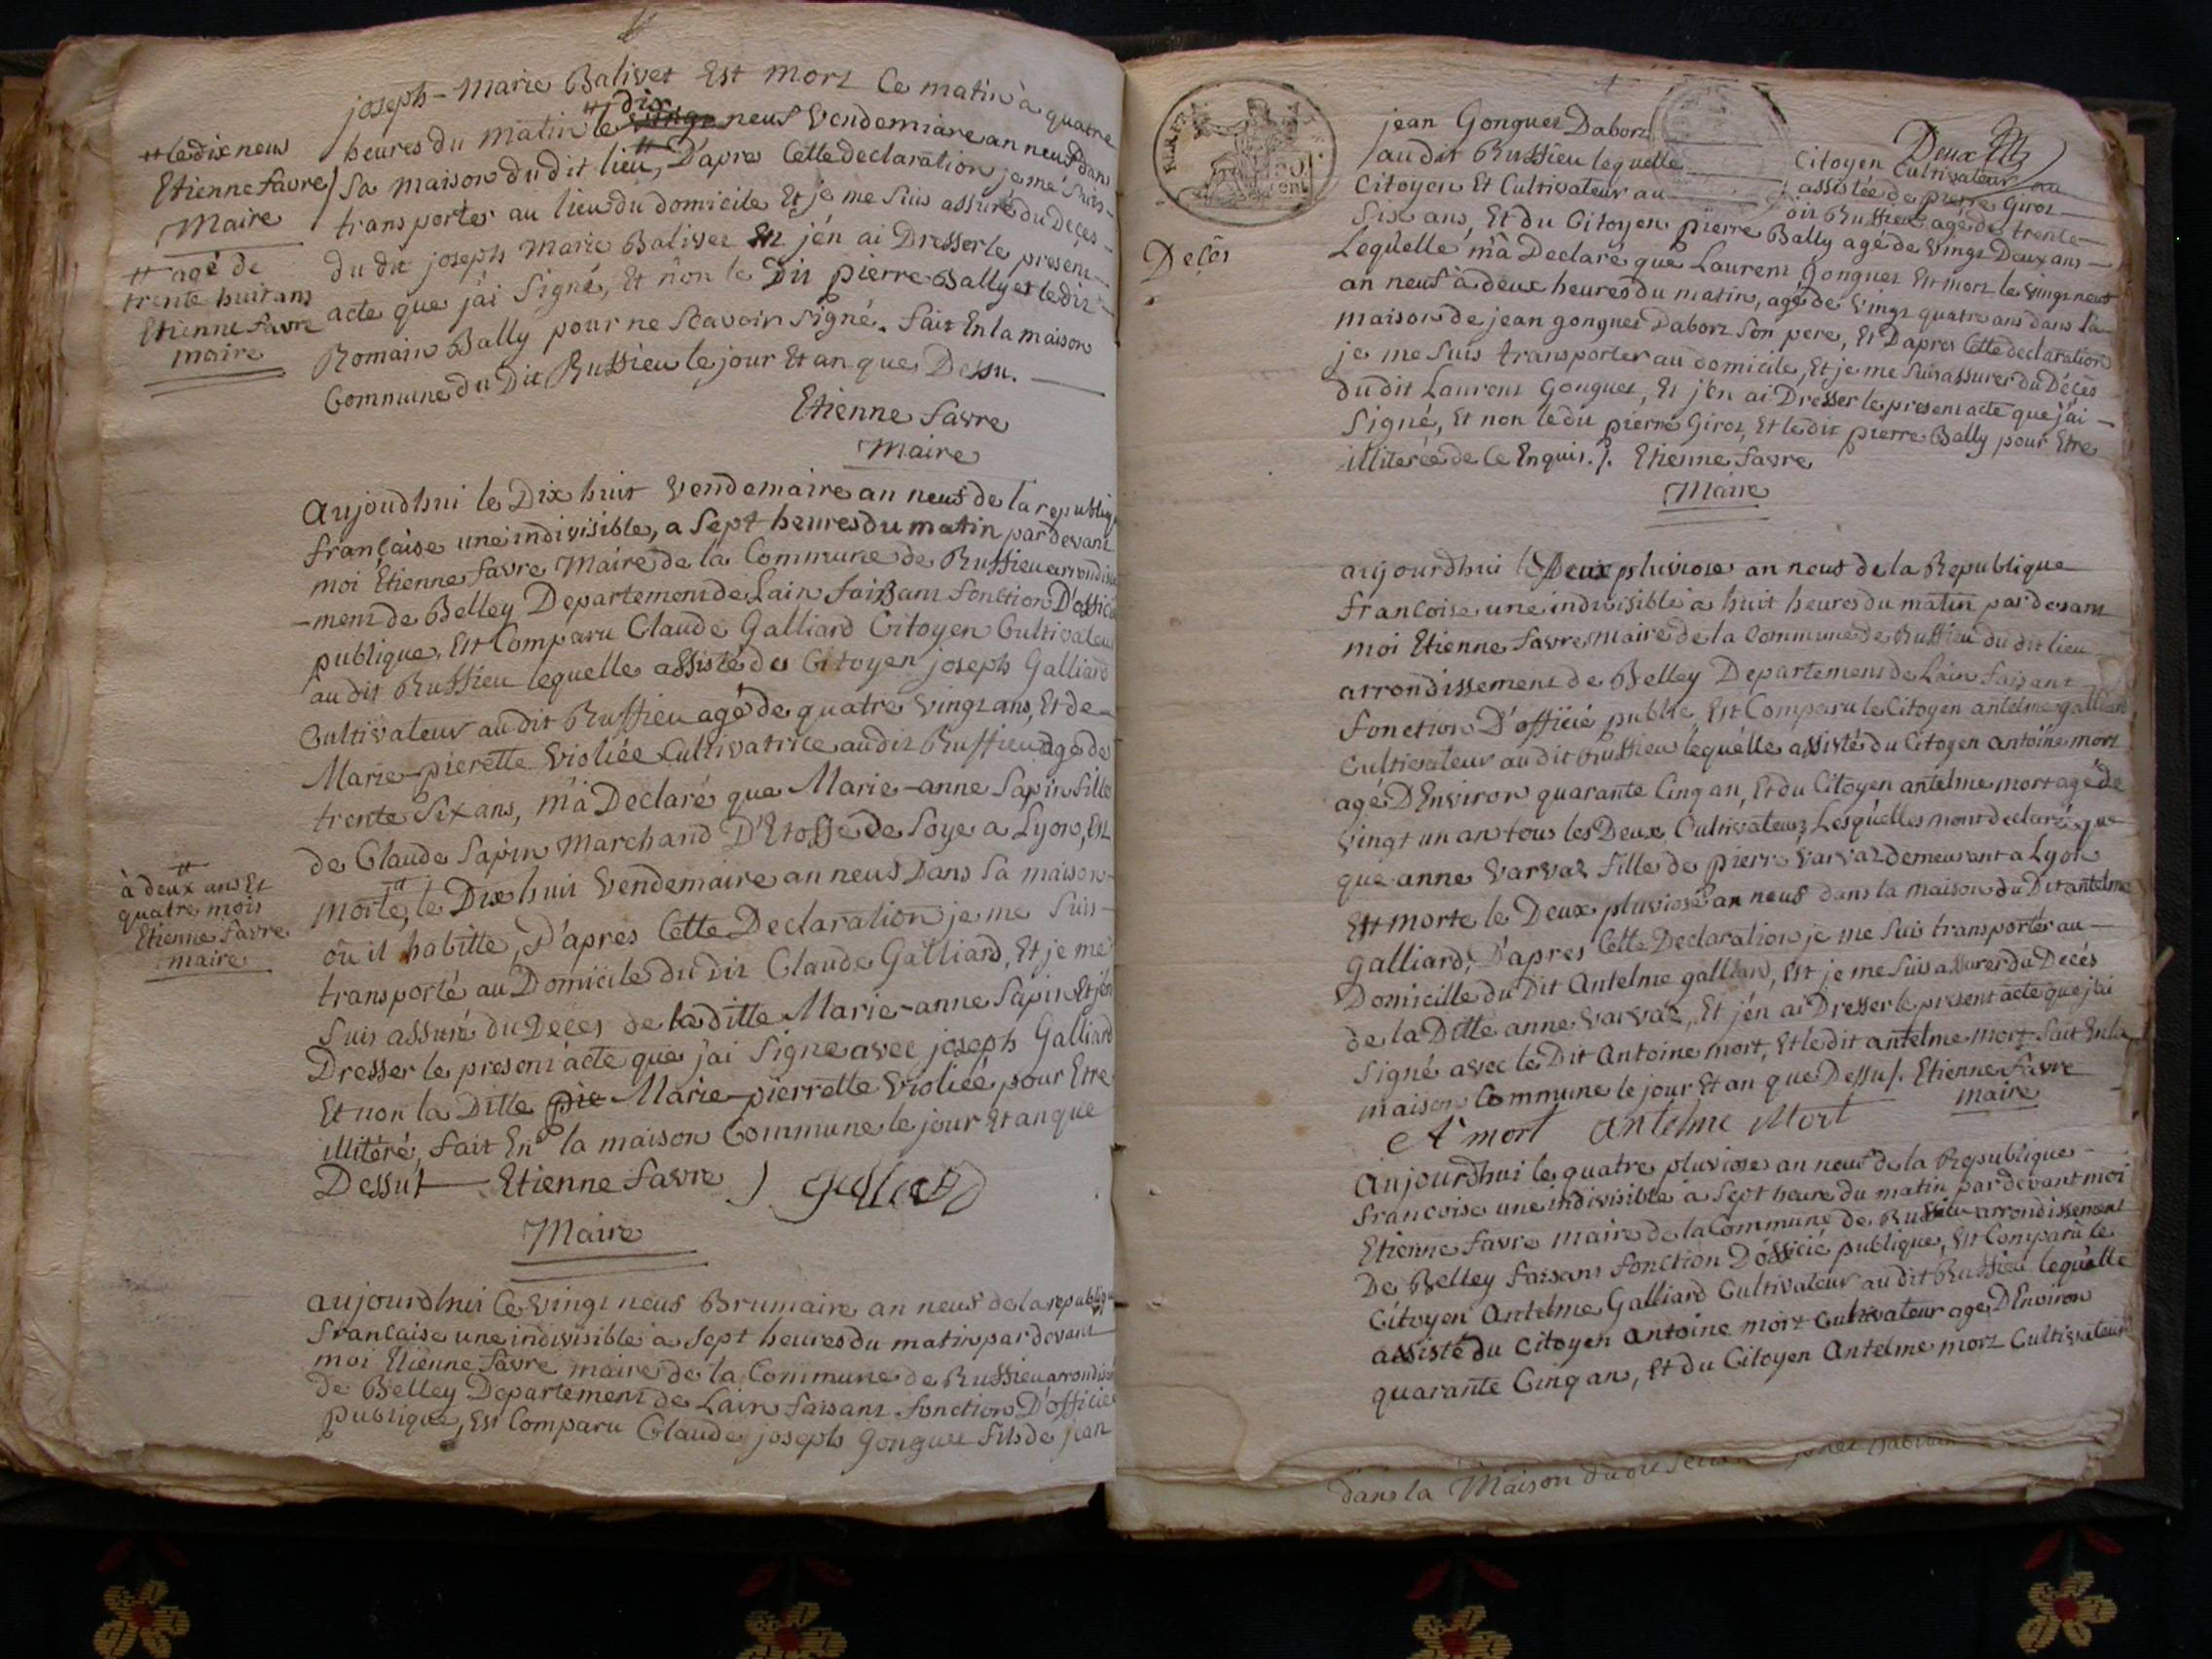 joseph-Marie Balivet Est mort Ce matin à quatre
heures du matin le dix neuf Vendemiare an neuf dans
Sa maison du dit lieu, D'apres Cette declaration je me Suis
transporter au lieu du domicile Et je me Suis assuré du Deces
du dit joseph Marie Balivet Et j'en ai Dresser le present
acte que j'ai Signé, Et non le Dit pierre Bally et le dit
Romain Bally pour ne Scavoir Signé. fait En la maison
Commune du Dit Russieu le jour Et an que Dessu.
Etienne favre
Maire
le dix neuf
Etienne favre
Maire
agé de
trente huit ans
Etienne favre
maire
Aujoudhui le Dix huit Vendemaire an neuf de la republiq
française une indivisible, a Sept heures du matin par devant
moi Etienne favre Maire de la Commune de Russieu arrondisse
-ment de Belley Departement de Lain faisant fonction D'officié
publique, Est Comparu Claude Galliard Citoyen Cultivateur
au dit Russieu lequelle assisté des Citoyen joseph Galliard
Cultivateur au dit Russieu agé de quatre vingt ans, Et de
Marie-pierette Violiée Cultivatrice au dit Russieu agé de
trente Six ans, m'a Declaré que Marie-anne Sapin fille
de Claude Sapin Marchand D'Etoffe de Soye a Lyon, Est
morte, le Dix huit Vendemaire an neuf Dans Sa maison
ou il habitte, D'apres Cette Declaration je me Suis
transporté au Domicile du dit Claude Galliard, Et je me
Suis assuré du Deces de la ditte Marie-anne Sapin Et j'en
Dresser le present acte que j'ai Signe avec joseph Galliard
Et non la Ditte pie Marie-pierrette Violiée, pour Etre
illitéré, fait En la maison Commune le jour Et an que
Dessu Etienne favre
Maire
à deux ans Et
quatre mois
Etienne favre
maire
aujourdhui le Vingt neuf Brumaire an neuf de la republiq
française une indivisible a Sept heures du matin par devant
moi Etienne favre maire de la Commune de Russieu arrondiss
de Belley Departement de Lain faisant fonction D'officie
publique, Est Comparu Claude joseph Gonguet fils de jean
Deux
jean Gonguet Dabort Citoyen Cultivateur
au dit Russieu lequelle assistée de pierre Girot
Citoyen Et Cultivateur au dit Russieu agé de trente
Six ans, Et du Citoyen pierre Bally agé de Vingt Deux ans
Lequelle m'a Declaré que Laurent Gonguet Est mort le Vingt neuf
an neuf à deux heures du matin, agé de Vingt quatre ans dans la
maison de jean gonguet Dabort Son pere, Et D'apres Cette declaration
je me Suis transporter au domicile, Et je me Suis assurer du Décès
du dit Laurent Gonguet, Et j'en ai Dresser le present acte que j'ai
Signé, Et non le du pierre Girot, Et le dit pierre Bally pour Etre
illiterée de le Enquis./. Etienne favre
Maire
Decès
aujourdhui le Deux pluviose an neuf de la Republique
francoise une indivisible a huit heures du matin par devant
moi Etienne favre maire de la Commune de Russieu du dit lieu
arrondissement de Belley Departement de Lain faisant
fonction D'officié public, Est Comparu le Citoyen antelme galliard
Cultivateur au dit Russieu lequelle assisté du Citoyen antoine mort
agé D'Environ quarante Cinq an, Et du Citoyen antelme mort agé de
Vingt un an tous les Deux Cultivateur, Lesquelles mont declaré que
que anne Varvaz fille de pierre Varvaz demeurant a Lyon
Est morte le Deux pluviose an neuf dans la maison du Dit antelme
Galliard, D'apres Cette Declaration je me Suis transporter au
Domicille du Dit Antelme galliard, Est je me Suis assurer du Decés
de la Ditte anne Varvaz, Et j'en ai Dresser le present acte que j'ai
Signé avec le Dit Antoine mort, Et le dit antelme mort fait En la
maison Commune le jour Et an que Dessu/. Etienne favre
maire
At mort Antelme Mort
Aujourdhui le quatre pluviose an neuf de la Republique
francoise une indivisible a Sept heure du matin par devant moi
Etienne favre maire de la Commune de Russieu arrondissement
De Belley faisant fonction D'officié publique, Est Comparu le
Citoyen Antelme Galliard Cultivateur au dit Russieu lequelle
assisté du Citoyen Antoine mort Cultivateur agé D'Environ
quarante Cinq an, Et du Citoyen Antelme mort Cultivateur
dans la Maison du dit